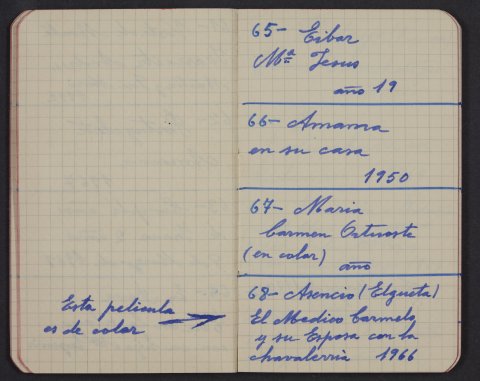 Esta pelicula
es de color
65- Eibar
Mª Jesus
año 19
66- Amama
en su casa
1950
67- Maria
Carmen Ortuoste
(en color)
año
68- Asencio (Elgueta)
El Medico Carmelo
y su Esposa con la
chavalerria 1966